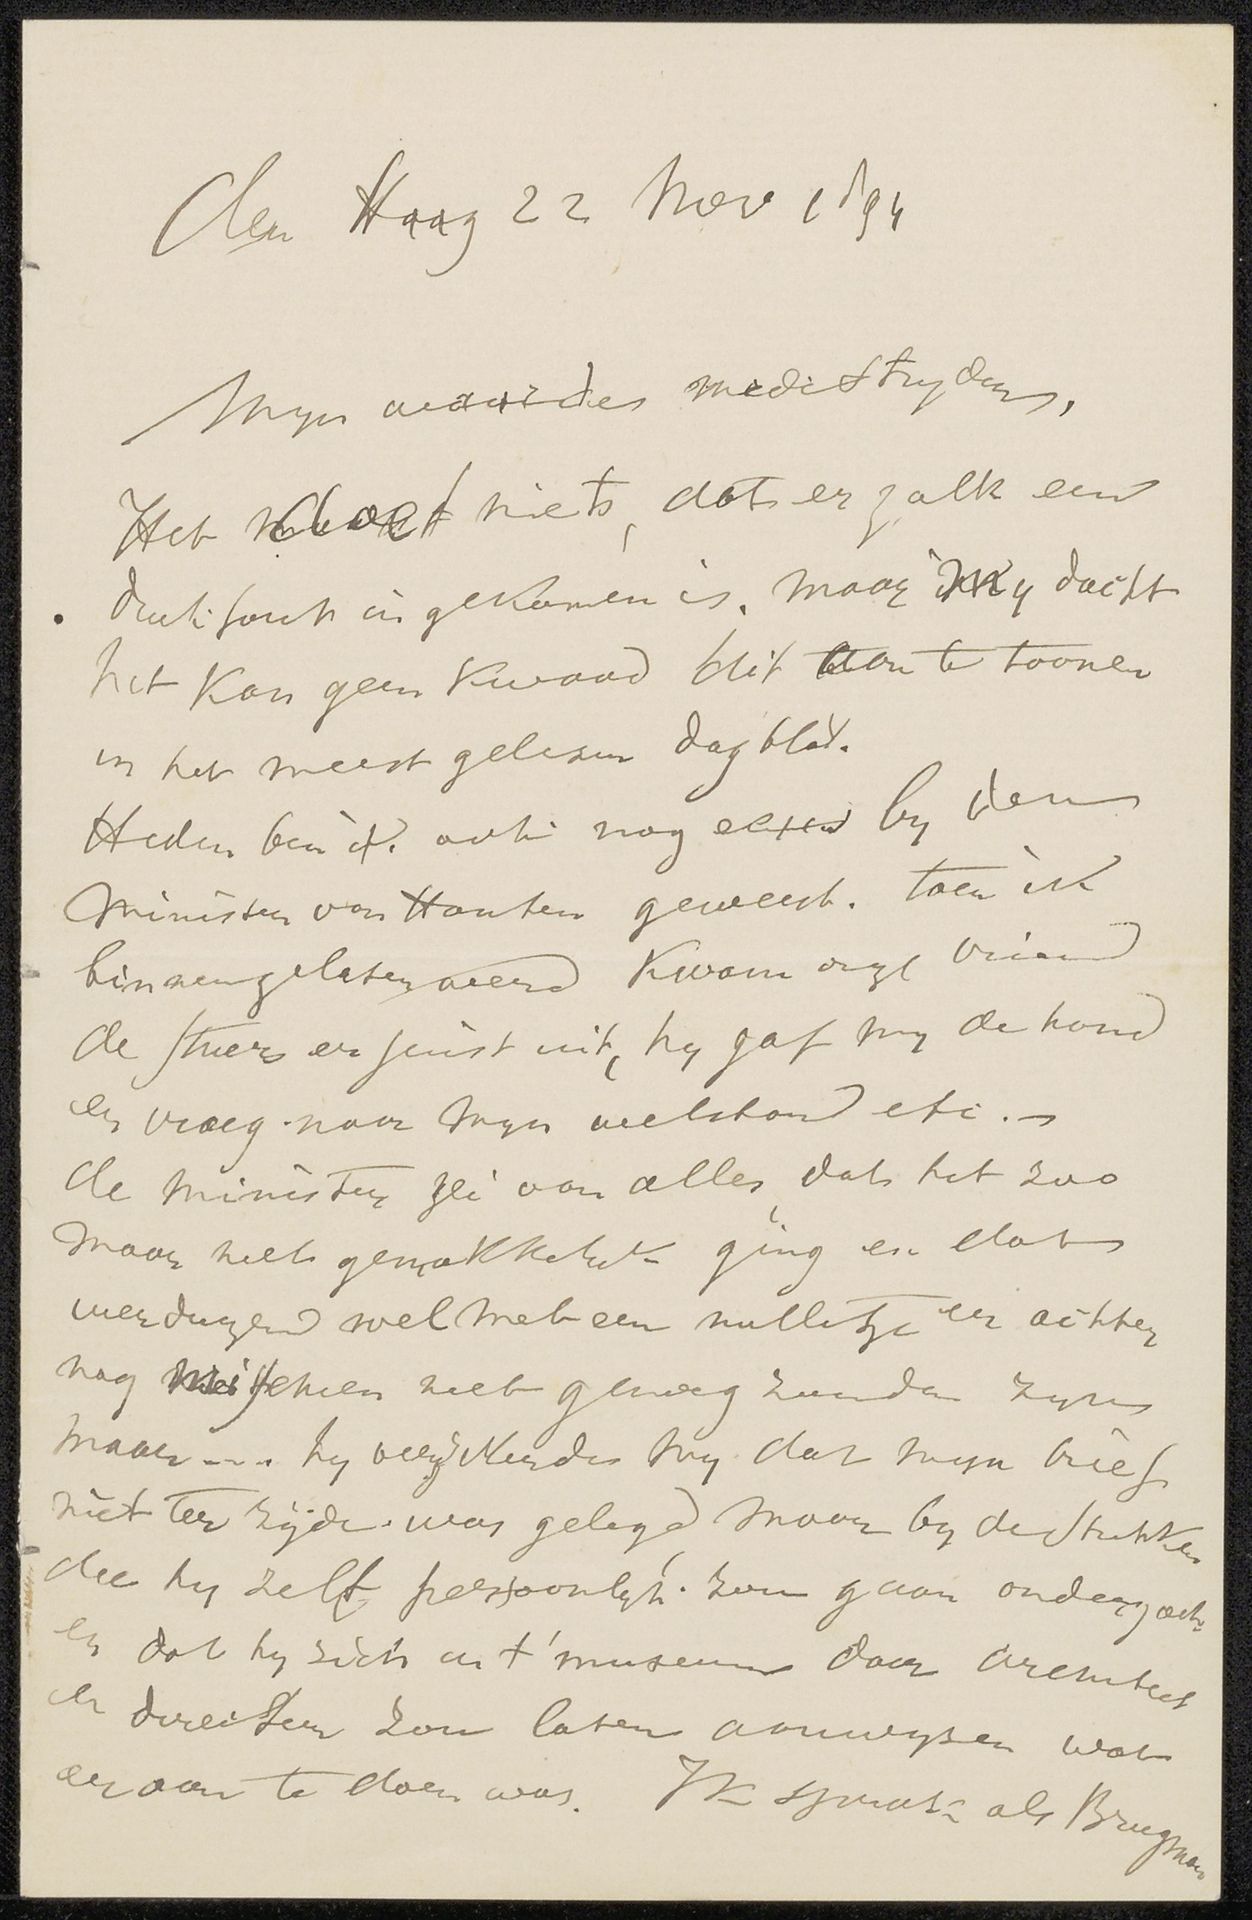 Den Haag 22 Nov 1894
Mijn waardes medestryders,
Het doet niets, dat er zulk een
drukfout in gekomen is. maar my dacht
het kan geen kwaad dit aan te toonen
in het meest gelezen dagblad.
Heden ben ik ook nog eens by den
Minister van Houten geweest. toen ik
binnengelaten werd kwam onze vriend
de Stuers er juist uit, hy gaf my de hand
en vroeg naar myn welstand etc. –
de minister zei van alles, dat het zoo
maar niet gemakkelyk ging en dat
vierduizend wel met een nulletje er achter
nog misschien niet genoeg zouden zyn
maar .... hy verzekerde my dat myn brief
niet ter zijde was gelegd maar by de stukken
die hy zelf persoonlyk zou gaan onderzoeken
en dat hy zich in 't museum door architect
en directeur zou laten aanwyzen wat
er aan te doen was. Ik sprak als Brugman